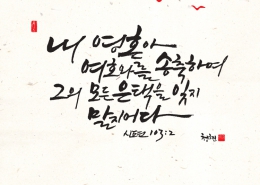 내 영혼아
여호와를 송축하며
그의 모든 은택을 잊지
말지어다
시편 103:2